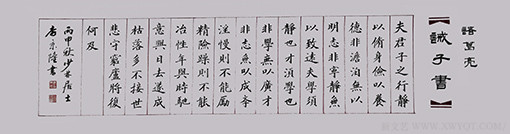 諸葛亮
【誡子書】
夫君子之行靜
以脩身儉以養
德非澹泊無以
明志非寧靜無
以致遠夫學須
靜也才須學也
非學無以廣才
非志無以成學
淫慢則不能勵
精險躁則不能
冶性年與時馳
意與日去遂成
枯落多不接世
悲守窮廬將復
何及
丙申秋少林居士
書